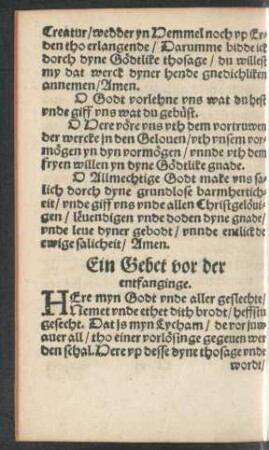 Creatur/wedder yn Hemmel noch vp Er-
den tho erlangende / Darumme bidde ick
dorch dyne Gödtlike thosage / du willest
my dat werck dyner hende gnedichliken
annemen/Amen.
O Godt vorlehne vns wat du hest
vnde giff vns wat du gebüst.
O Here vöre vns vth dem vortruwen
der wercke jn den Gelouen/vth vnsem vor-
mögen yn dyn vormögen / vnnde vth dem
fryen willen yn dyne Gödtlike gnade.
O Allmechtige Godt make vns sa-
lich dorch dyne grundlose barmhertich-
eit/vnde giff vns vnde allen Christgelöui-
gen / leuendigen vnde doden dyne gnade/
vnde leue dyner gebodt / vnnde entlick de
ewige salicheit/ Amen.
Ein Gebet vor der
entfanginge.
HEre myn Godt vnde aller geslechte/
Nemet vnde ethet dith brodt/heffstu
gesecht. Dat js myn Lycham / de vor juw
auer all / tho einer vorlösinge gegeuen wer
den schal. Here vp desse dyne thosage vnde
wordt/